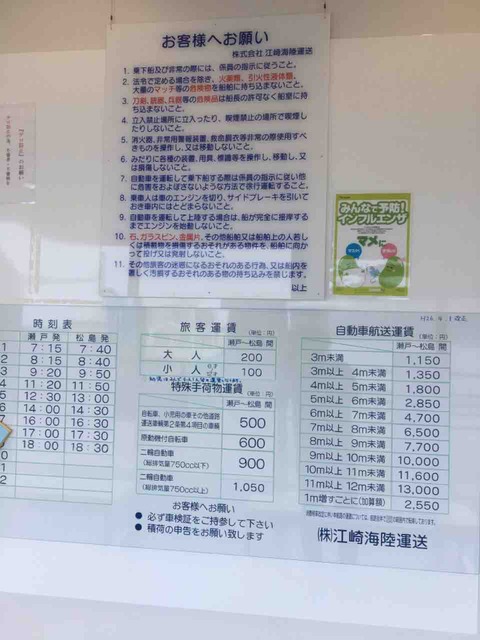 お客様へお願い
株式会社 江崎海陸運送
1. 乗下船及び非常の際には、係員の指示に従うこと。
2. 法令で定める場合を除き、火薬類、引火性液体類、
大量のマッチ等の危険物を船舶に持ち込まないこと。
3. 刀剣、銃器、兵器等の危険品は船長の許可なく船室に持
ち込まないこと。
4. 立入禁止場所に立入ったり、喫煙禁止の場所で喫煙し
たりしないこと。
5. 消火器、非常用警報装置、救命胴衣等非常の際使用すべ
きものを操作し、又は移動しないこと。
6. みだりに各種の装置、用具、標識等を操作し、移動し、又
は損傷しないこと。
7. 自動車を運転して乗下船する際は係員の指示に従い他
に危害をおよぼさないような方法で徐行運転すること。
8. 乗車人は車のエンジンを切り、サイドブレーキを引いて
おき車内にはとどまらないこと。
9. 自動車を運転して上陸する場合は、船が完全に接岸する
までエンジンを始動しないこと。
10. 石、ガラスビン、金属片、その他船舶又は船舶上の人若し
くは積載物を損傷するおそれがある物件を、船舶に向か
って投げ又は発射しないこと。
11. その他旅客の迷惑になるおそれのある行為、又は船内を
著しく汚損するおそれある物の持ち込みを禁じます。
以上
みんなで予防!
インフルエンザ
マメに
時刻表
瀬戸発 松島発
1 7:15 7:40
2 8:15 8:40
3 9:20 9:50
4 11:20 11:50
5 12:30 13:00
6 14:00 14:30
16:00 16:30
17:00 17:30
18:00 18:30
旅客運賃
(単位:円)
瀬戸〜松島 間
大人 200
小人 100
特殊手荷物運賃
(単位:円)
瀬戸〜松島 間
自転車、小児用の車その他道路
運送車輌第2条第4項目の車輌 500
原動機付自転車 600
二輪自動車
(総排気量750cc以下) 900
二輪自動車
(総排気量750cc以上) 1,050
お客様へお願い
● 必ず車検証をご持参して下さい
● 積荷の申告をお願い致します
自動車航送運賃
(単位:円)
瀬戸〜松島 間
3m未満 1,150
3m以上 4m未満 1,350
4m以上 5m未満 1,800
5m以上 6m未満 2,850
6m以上 7m未満 4,700
7m以上 8m未満 6,500
8m以上 9m未満 7,700
9m以上 10m未満 10,000
10m以上 11m未満 11,600
11m以上 12m未満 13,000
1m増すごとに(加算額) 2,550
㈱江崎海陸運送